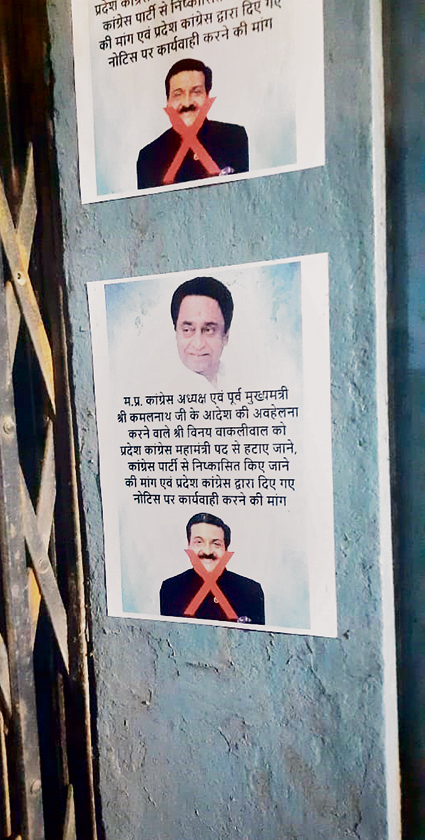 कांग्रेस पार्टी से
की मांग एवं प्रदेश कांग्रेस द्वारा दिए गए
नोटिस पर कार्यवाही करने की मांग
म.प्र. कांग्रेस अध्यक्ष एवं पूर्व मुख्यमंत्री
श्री कमलनाथ जी के आदेश की अवहेलना
करने वाले श्री विनय वाकलीवाल को
प्रदेश कांग्रेस महामंत्री पद से हटाए जाने,
कांग्रेस पार्टी से निष्कासित किए जाने
की मांग एवं प्रदेश कांग्रेस द्वारा दिए गए
नोटिस पर कार्यवाही करने की मांग